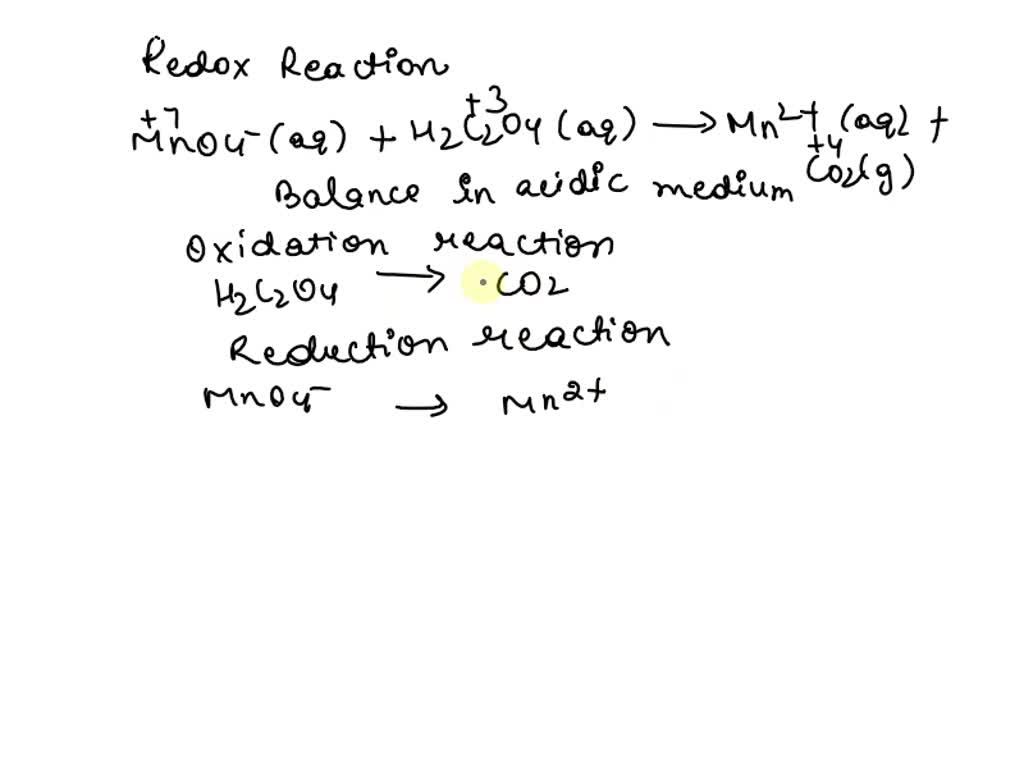 Redox Reaction
+7 +3
MnO4⁻ (aq) + H2C2O4 (aq) → Mn2+ (aq) +
+4
Balance in acidic medium CO2(g)
Oxidation reaction
H2C2O4 → CO2
Reduction reaction
MnO4⁻ → Mn2+